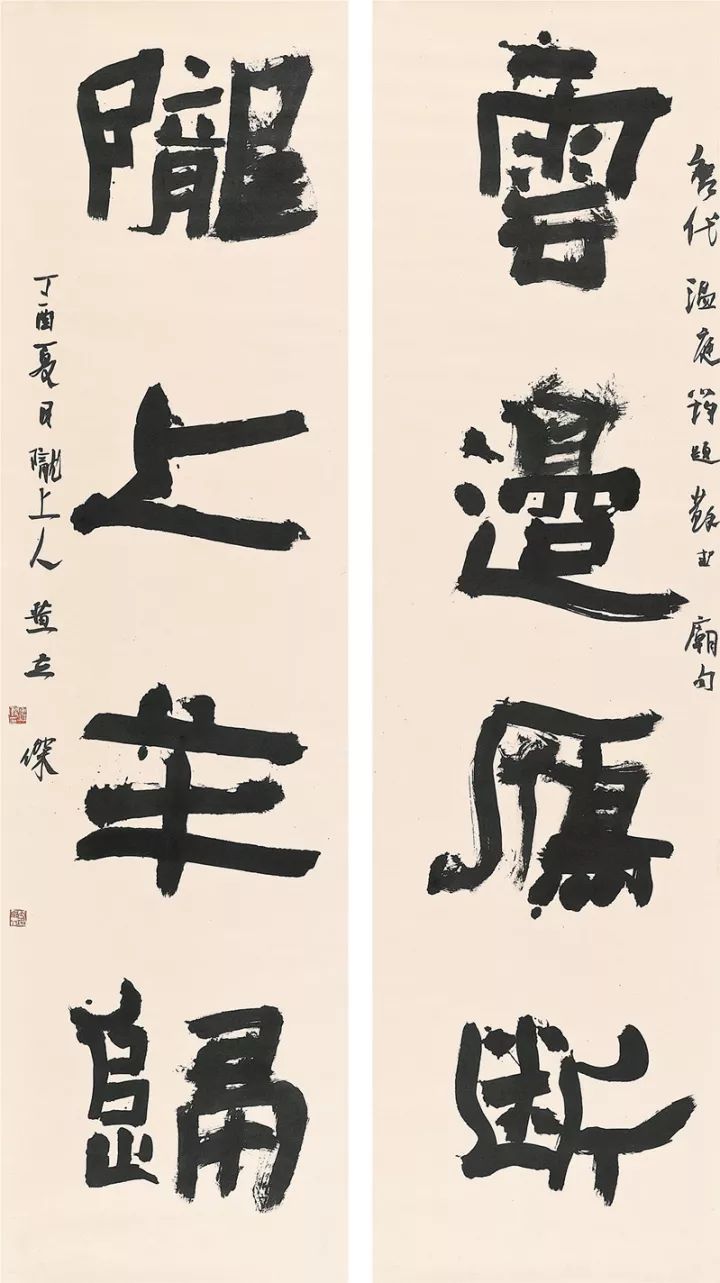 唐代温庭筠題蘇武廟句
雲邊鴈断
隴上羊歸
丁酉夏日隴上人